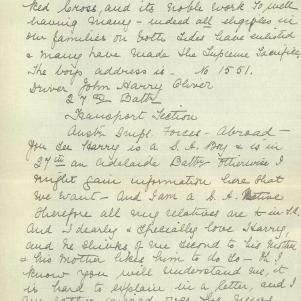 Red Cross, and its noble work so well
having many - indeed all eligibles, in
our families on both sides have enlisted
& many have made the Supreme Sacrifice,
The boys address is - No 1551.
Driver John Harry Oliver
27th Battn
Transport Section
Austn Impl. Forces - Abroad -
You see Harry is a S.A. Boy & is in
27th an Adelaide Battn otherwise I
might gain information here that
we want - And I am a S.A. Native
Therefore all my relatives are in S.A.
And I dearly & specially love Harry,
and he thinks of me second to his Mother
& his Mother likes him to do so - Oh I
know you will understand me, it
is hard to explain in a letter, and I